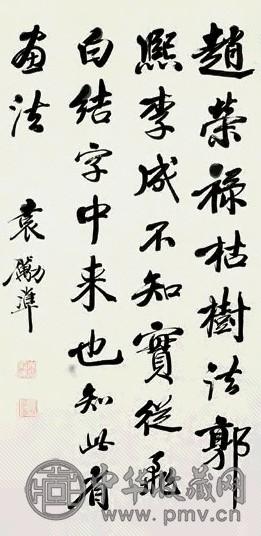 趙榮祿枯樹法郭
熙李成不知實從飛
白結字中来也知此看
畫法
袁勵準
中华收藏网
www.pmv.cn